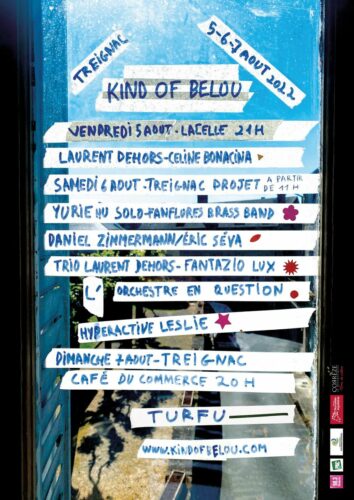 TREIGNAC
5-6-7 AOUT 2022
KIND OF BELOU
VENDREDI 5 AOUT - LACELLE 21H
LAURENT DEHORS - CELINE BONACINA
SAMEDI 6 AOUT - TREIGNAC PROJET A PARTIR DE 11H
YURIE HU SOLO - FANFLORES BRASS BAND
DANIEL ZIMMERMANN/ÉRIC SÉVA
TRIO LAURENT DEHORS - FANTAZIO LUX
L' ORCHESTRE EN QUESTION
HYPERACTIVE LESLIE
DIMANCHE 7 AOUT - TREIGNAC
CAFÉ DU COMMERCE 20H
TURFU
WWW.KINDOFBELOU.COM
CORRÈZE